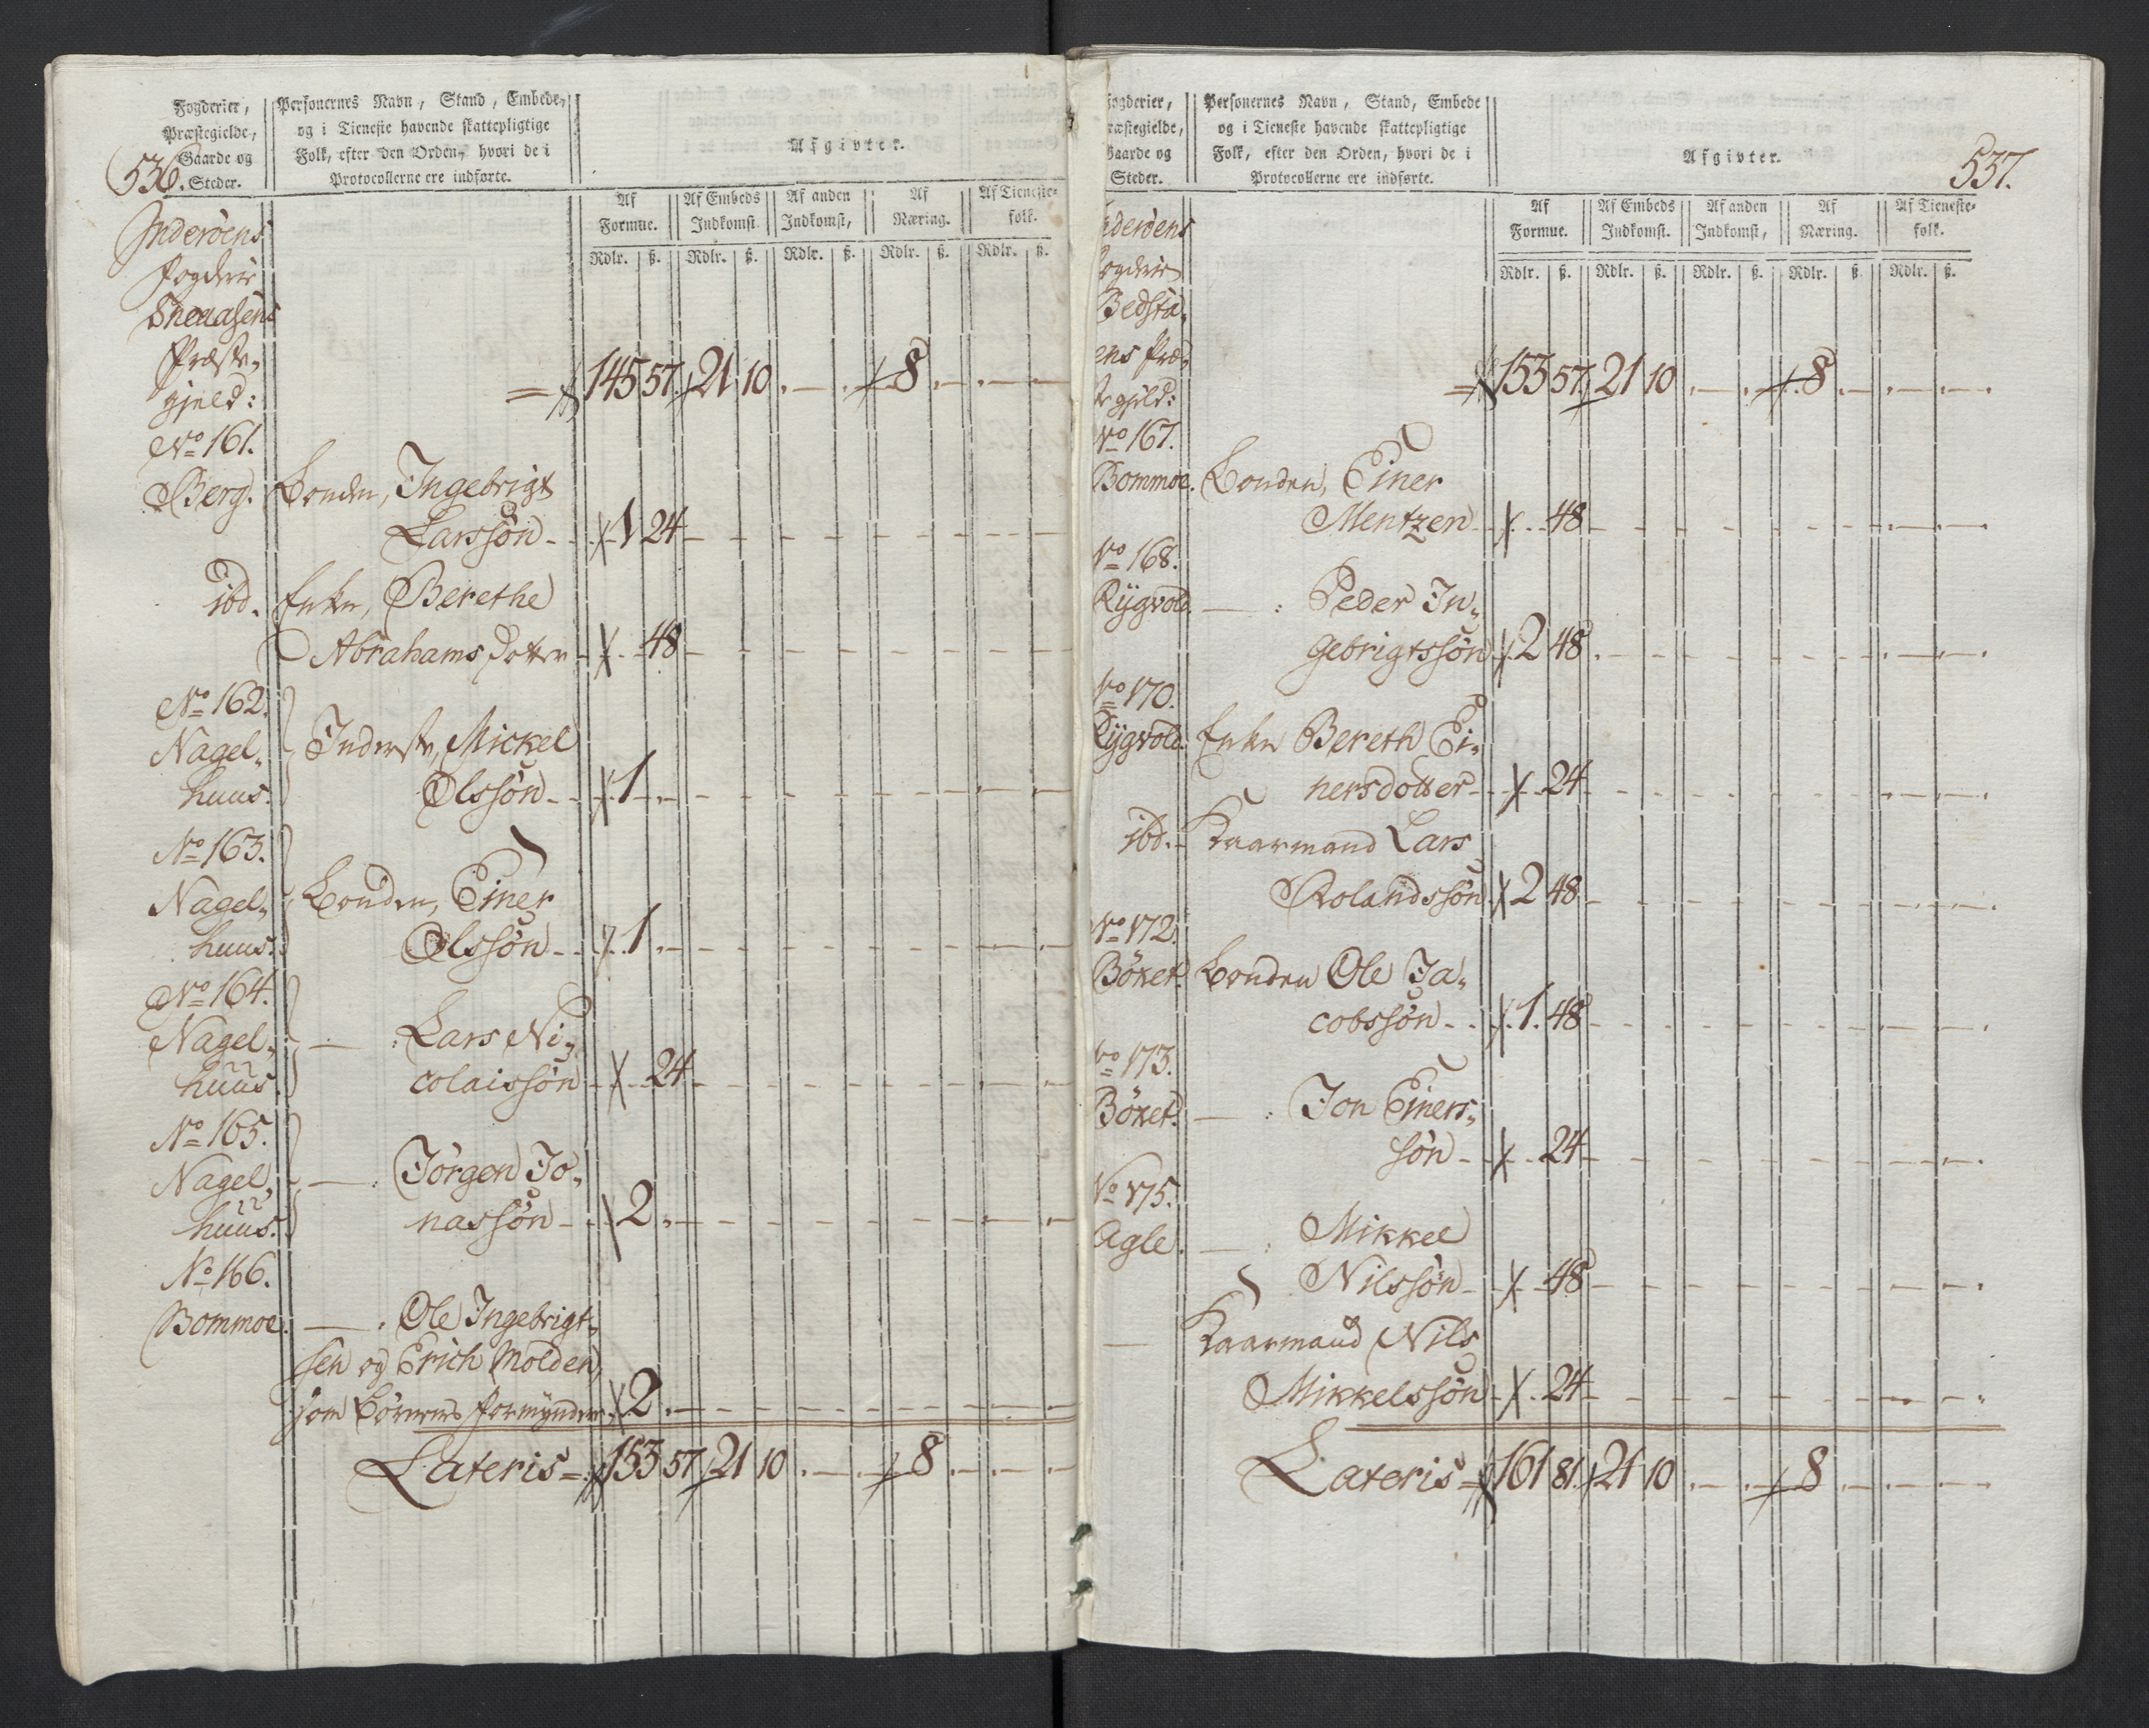 536.
Fogderier,
Præstegielde,
Gaarde og
Steder.
Personernes Navn, Stand, Embede,
og i Tieneste havende skattepligtige
Folk, efter den Orden, hvori de i
Protocollerne ere indførte.
Afgivter.
Af Formue. Af Embeds Indkomst. Af anden Indkomst, Af Næring. Af Tienestefolk.
Rdlr. ß. Rdlr. ß. Rdlr. ß. Rdlr. ß. Rdlr. ß.
Inderöens
Fogderie
Snaasens
Præste-
gjeld:
145 57 21 10 . — . 8 . — . —
No 161.
Berg. Bonden, Ingebrigt
Larssön - 1 24
ibd. Enke, Berethe
Abrahams Dotter - 48
No 162.
Nagel- Inderste, Mickel
huus. Olssön - 1 . -
No 163.
Nagel- Bonden, Einer
huus. Olssön - 1 . -
No 164.
Nagel- — : Lars Ni-
huus. colaissön - 24
No 165.
Nagel- — : Jörgen Jo-
huus. nassön - 2 . -
No 166.
Bommoe. — : Ole Ingebrigt-
sen og Erich Molden,
som Börnenes Formyndere 2 . -
Lateris = 153 57 21 10 . — . 8 . — . —
537.
Fogderier,
Præstegielde,
Gaarde og
Steder.
Personernes Navn, Stand, Embede
og i Tieneste havende skattepligtige
Folk, efter den Orden, hvori de i
Protocollerne ere indførte.
Afgivter.
Af Formue. Af Embeds Indkomst. Af anden Indkomst, Af Næring. Af Tienestefolk.
Rdlr. ß. Rdlr. ß. Rdlr. ß. Rdlr. ß. Rdlr. ß.
nderöens
Fogderie
Bedsta-
ens Præ-
ste gjeld:
153 57 21 10 . — . 8 . — . —
No 167.
Bommoe. Bonden, Einer
Mentzen - 48
No 168.
Rygvold. — : Peder In-
gebrigtssön 2 48
No 170.
Rygvold. Enke Bereth Ei-
nersdotter - 24
ibd. - Kaarmand Lars
Rolandssön 2 48
No 172.
Böxet. Bonden Ole Ja-
cobssön - 1 48
No 173.
Böxet. — : Jon Einers-
sön - 24
No 175.
Agle. — : Mikkel
Nilssön - 48
— Kaarmand Nils
Mikkelssön - 24
Lateris = 161 81 21 10 . — . 8 . — . —